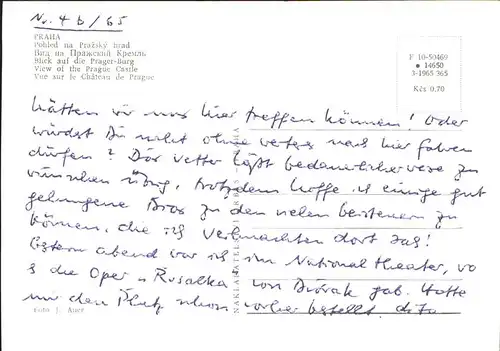 Nr. 4 b/65
PRAHA
Pohled na Pražský hrad
Вид на Пражский Кремль
Blick auf die Prager-Burg
View of the Prague Castle
Vue sur le Château de Prague
F 10-50469
• 14650
3-1965 365
Kčs 0,70
hätten wir uns hier treffen können! Oder
würdest Du nicht ohne weiteres nach hier fahren
dürfen? Das Wetter läßt bedauerlicherweise zu
wünschen übrig, trotzdem hoffe ich einige gut
gelungene Dias zu den vielen beisteuern zu
können, die ich Weihnachten dort sah!
Gestern abend war ich im National theater, wo
s die Oper Rusalka von Dvořak gab. Hatte
mir den Platz schon vorher bestellt. d.O.
Foto J. Auer